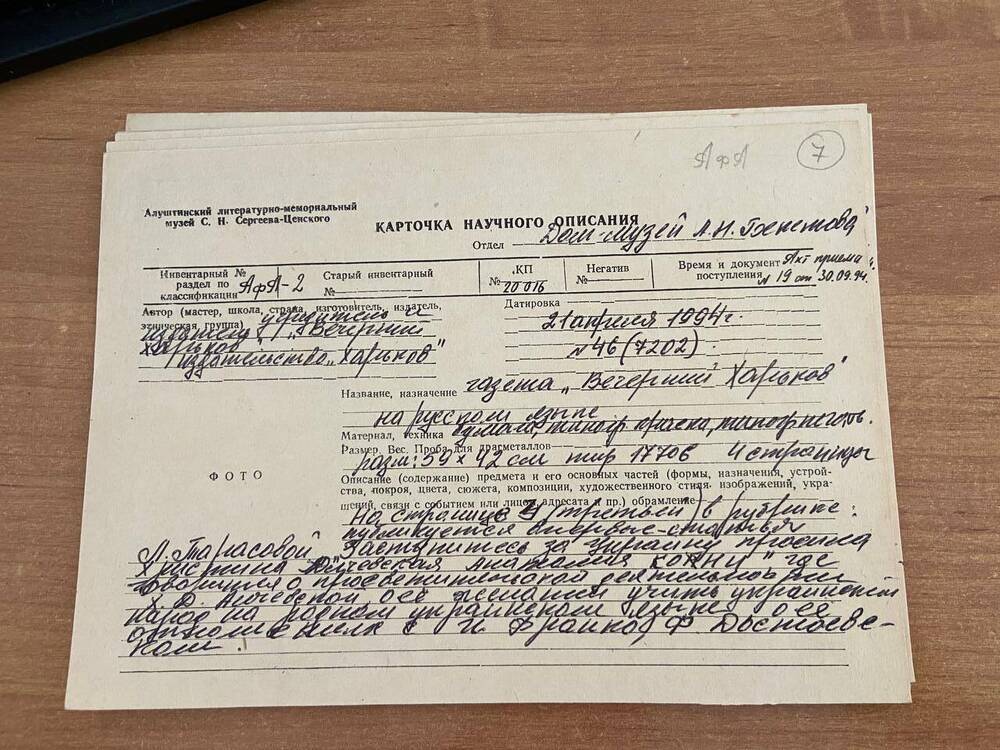 АфА 7
Алуштинский литературно-мемориальный
музей С. Н. Сергеева-Ценского
КАРТОЧКА НАУЧНОГО ОПИСАНИЯ
Отдел Дом-музей А.Н.
Инвентарный № раздел по классификации АфА-2
Старый инвентарный №
КП № 20016
Негатив №
Время и документ поступления Акт приема
№ 19 от 30.09.94г.
Автор (мастер, школа, страна, изготовитель, издатель,
этническая группа) учредитель и
издатель "Вечерний
Харьков"
Издательство "Харьков"
Датировка
21 апреля 1994 г.
№ 46 (7202)
Название, назначение газета "Вечерний Харьков"
на русском языке
Материал, техника бумага, типогр краска, типогр
Размер. Вес. Проба для драгметаллов
разм: 59 × 42 см тир 17706 4 страницы
ФОТО
Описание (содержание) предмета и его основных частей (формы, назначения, устрой-
ства, покроя, цвета, сюжета, композиции, художественного стиля, изображений, укра-
шений, связи с событием или лицом, адресата и пр.) обрамление
На странице 3 (третьей) в рубрике:
публикуется статья
Л. Тарасовой "Заступитесь за Украину просила
Христина Алчевская", где
говорится о просветительской деятельности
Х. Д. Алчевской, о её желании учить украинский
народ на родном украинском языке, о её
отношениях с И. Франко, Ф. Достоевс-
ким.